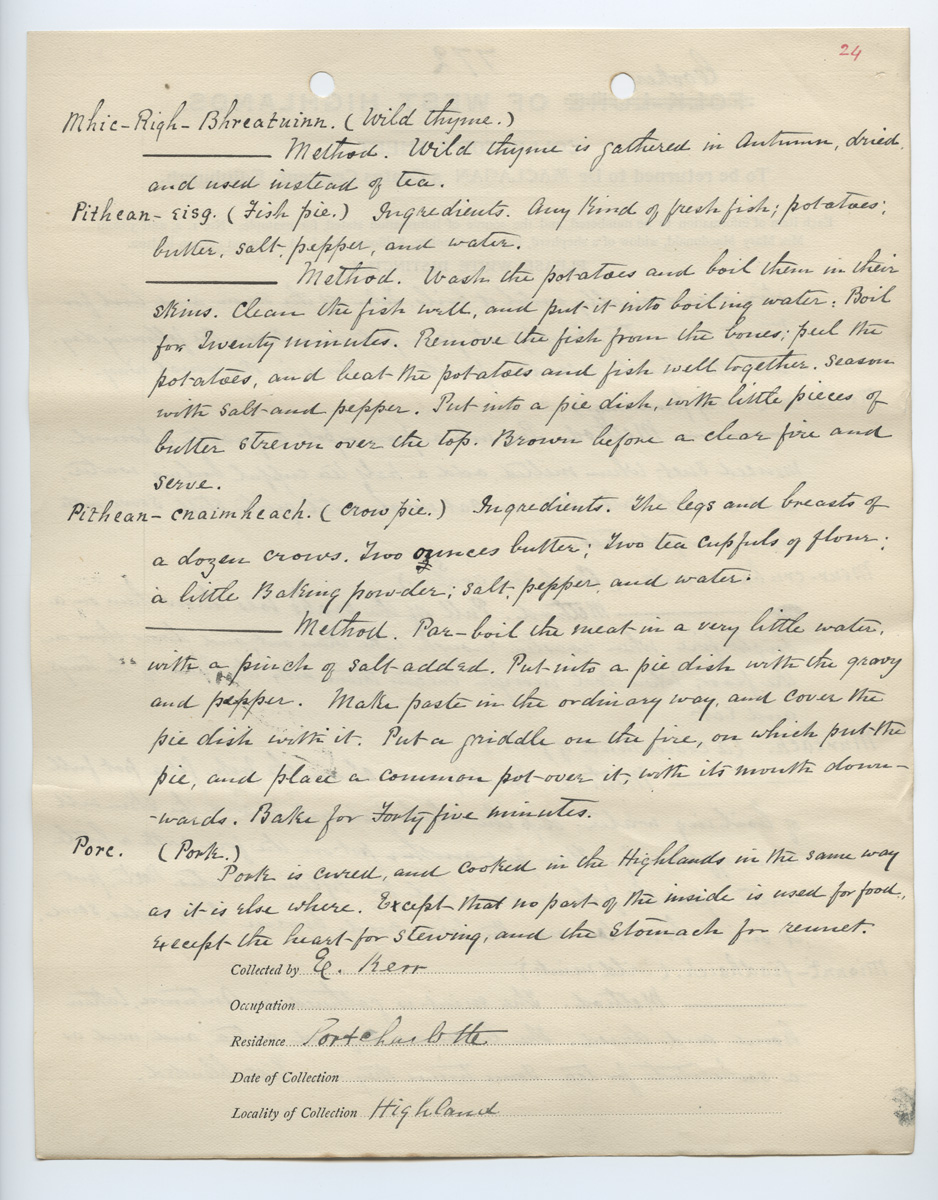 24
Mhic-Righ-Bhreatuinn. (Wild thyme.)
Method. Wild thyme is gathered in Autumn, dried,
and used instead of tea.
Pithean-eisg. (Fish pie.) Ingredients. Any kind of fresh fish; potatoes;
butter, salt, pepper, and water.
Method. Wash the potatoes and boil them in their
skins. Clean the fish well, and put it into boiling water; Boil
for Twenty minutes. Remove the fish from the bones; peel the
potatoes, and beat the potatoes and fish well together. Season
with salt and pepper. Put into a pie dish, with little pieces of
butter strewn over the top. Brown before a clear fire and
serve.
Pithean-cnaimheach. (Crow pie.) Ingredients. The legs and breasts of
a dozen crows. Two ounces butter; Two tea cupfuls of flour;
a little Baking powder; salt, pepper, and water.
Method. Par-boil the meat in a very little water,
with a pinch of salt added. Put into a pie dish with the gravy
and pepper. Make paste in the ordinary way, and cover the
pie dish with it. Put a griddle on the fire, on which put the
pie, and place a common pot over it, with its mouth down-
-wards. Bake for Forty five minutes.
Porc. (Pork.)
Pork is cured, and cooked in the Highlands in the same way
as it is else where. Except that no part of the inside is used for food,
except the heart for stewing, and the stomach for rennet.
Collected by E. Kerr
Occupation
Residence Portcharlotte
Date of Collection
Locality of Collection Highland